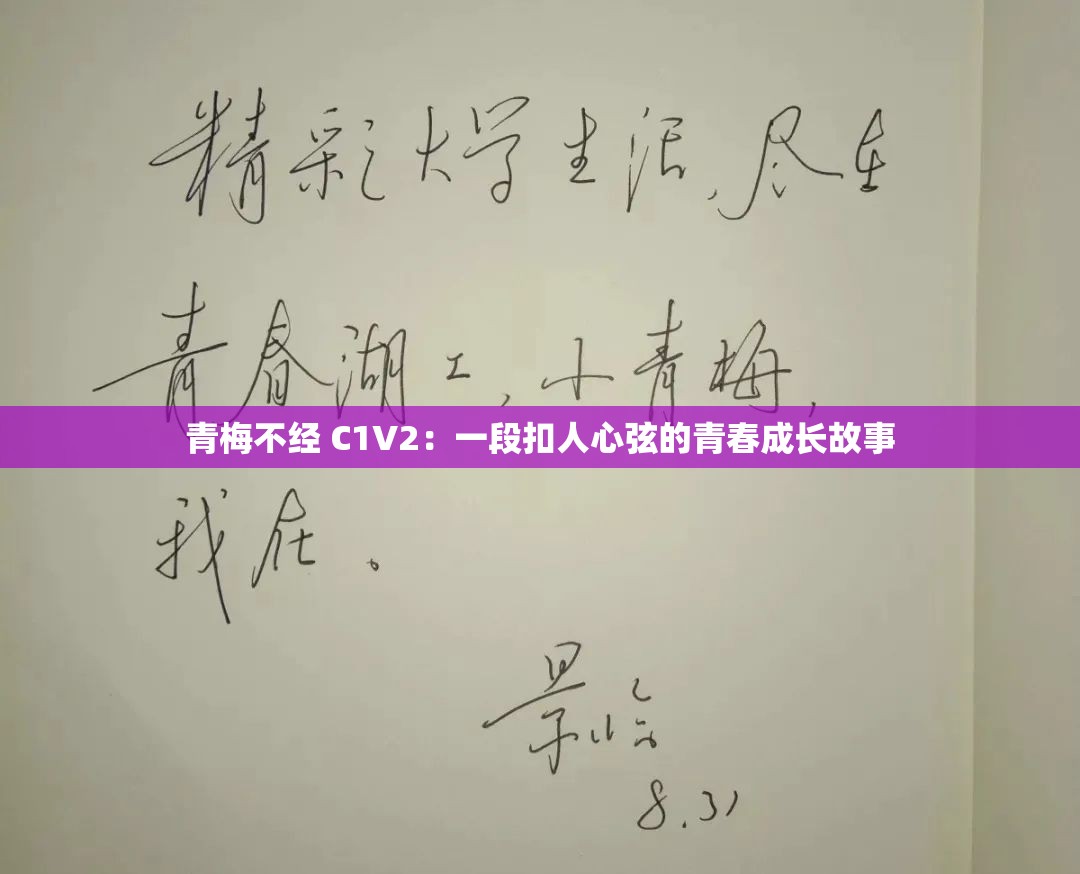 精彩大学生活,尽在
青春湖工,小青梅,
青梅不经 C1V2：一段扣人心弦的青春成长故事
我在。
8.31